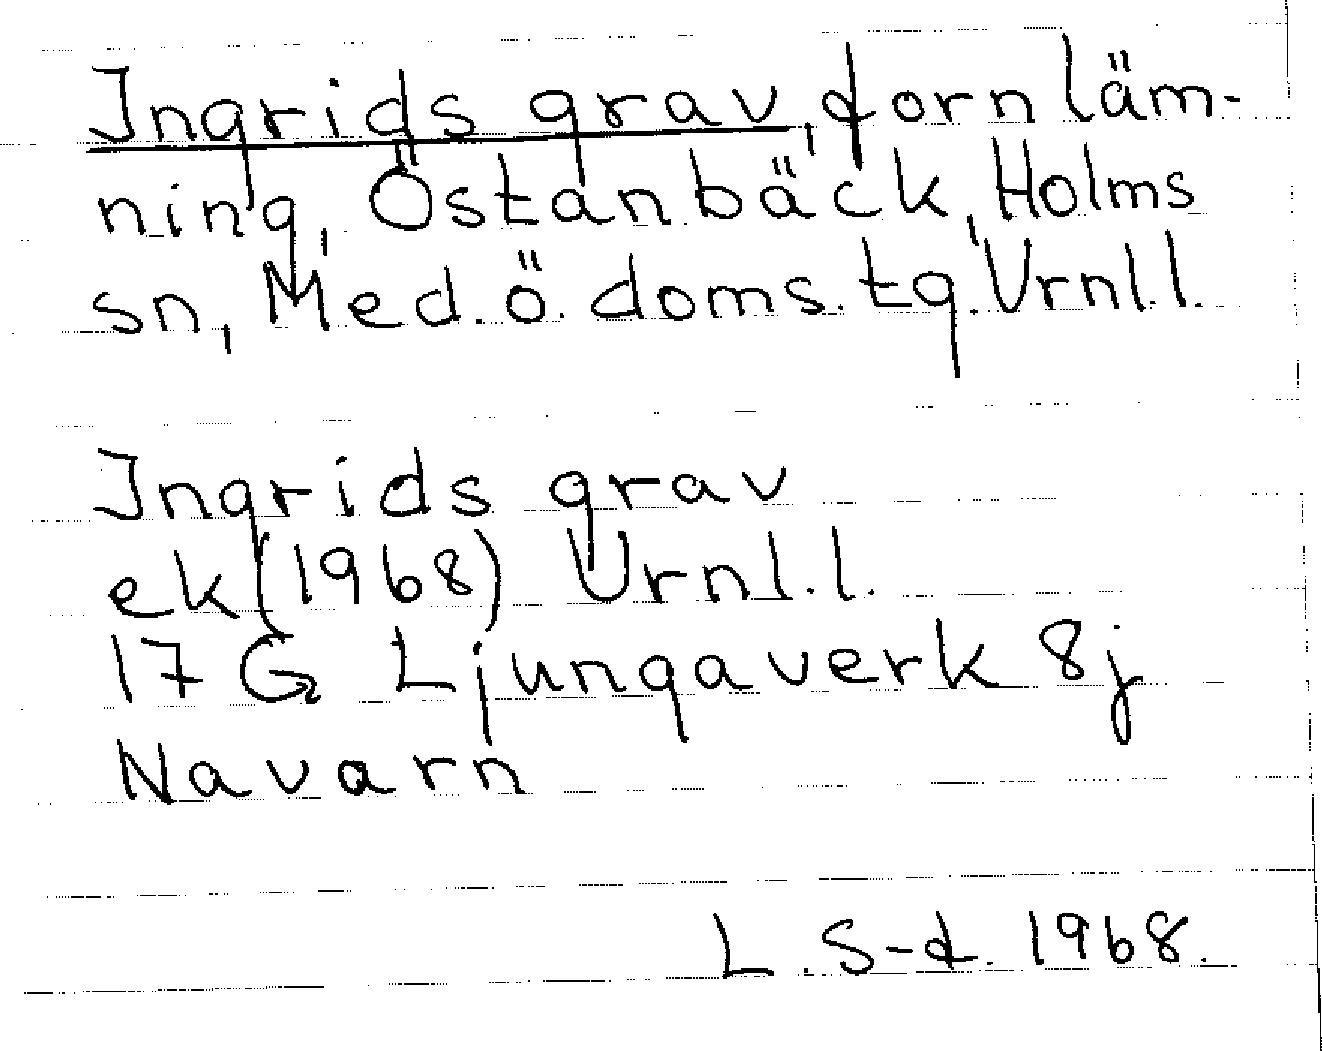 Ingrids grav, fornläm-
ning, Östanbäck, Holms
sn, Med. ö. doms. tg. Vrnl.l.
Ingrids grav
ek (1968) Vrnl.l.
17 G Ljungaverk 8j
Navarn
L. S-d. 1968.